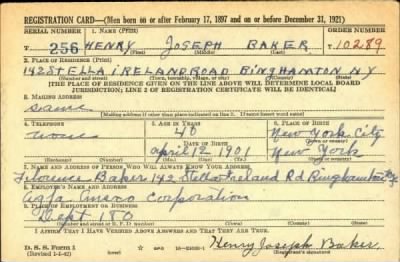 REGISTRATION CARD—(Men born on or after February 17, 1897 and on or before December 31, 1921)
SERIAL NUMBER 1. NAME (Print) ORDER NUMBER
T 256 HENRY JOSEPH BAKER T 10289
(First) (Middle) (Last)
2. PLACE OF RESIDENCE (Print)
142 STELLA IRELAND ROAD BINGHAMTON NY
(Number and street) (Town, township, village, or city) (County) (State)
[THE PLACE OF RESIDENCE GIVEN ON THE LINE ABOVE WILL DETERMINE LOCAL BOARD
JURISDICTION; LINE 2 OF REGISTRATION CERTIFICATE WILL BE IDENTICAL]
3. MAILING ADDRESS
Same
[Mailing address if other than place indicated on line 2. If same insert word same]
4. TELEPHONE 5. AGE IN YEARS 6. PLACE OF BIRTH
none 40 New York City
DATE OF BIRTH
April 12 1901 New York
7. NAME AND ADDRESS OF PERSON WHO WILL ALWAYS KNOW YOUR ADDRESS
Florence Baker 142 Stella Ireland Rd Binghamton
8. EMPLOYER'S NAME AND ADDRESS
Agfa Ansco Corporation
9. PLACE OF EMPLOYMENT OR BUSINESS
Dept 180
(Number and street or R. F. D. number) (Town) (County) (State)
I AFFIRM THAT I HAVE VERIFIED ABOVE ANSWERS AND THAT THEY ARE TRUE.
D. S. S. Form 1
(Revised 1-1-42)
Henry Joseph Baker